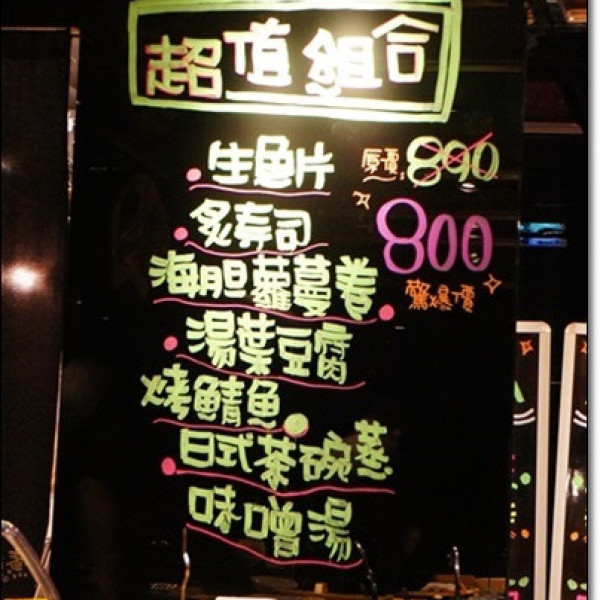 超值組合
生魚片 原價:890
炙寿司 800
海胆蘿蔓卷 驚爆價
湯葉豆腐
烤鯖魚
日式茶碗蒸
味噌湯